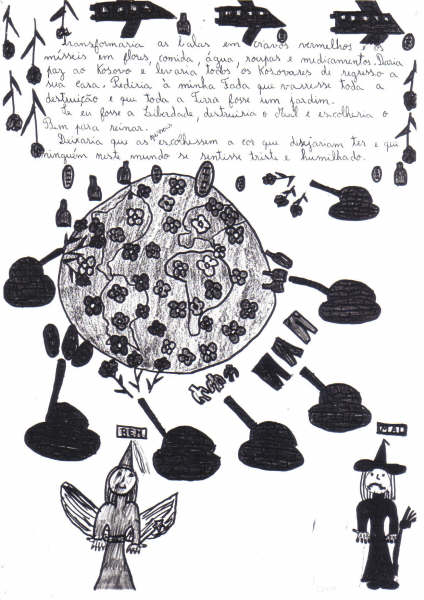 Transformaria as balas em cravos vermelhos, os
mísseis em flores, comida, água, roupas e medicamentos. Daria
paz ao Kosovo e levaria todos os Kosovares de regresso a
sua casa. Pediria à minha Fada que varresse toda a
destruição e que toda a Terra fosse um jardim.
Se eu fosse a Liberdade, destruiria o Mal e escolheria o
Bem para reinar.
Deixaria que as escolhessem a cor que desejavam ter e que
ninguém neste mundo se sentisse triste e humilhado.
BEM
MAL